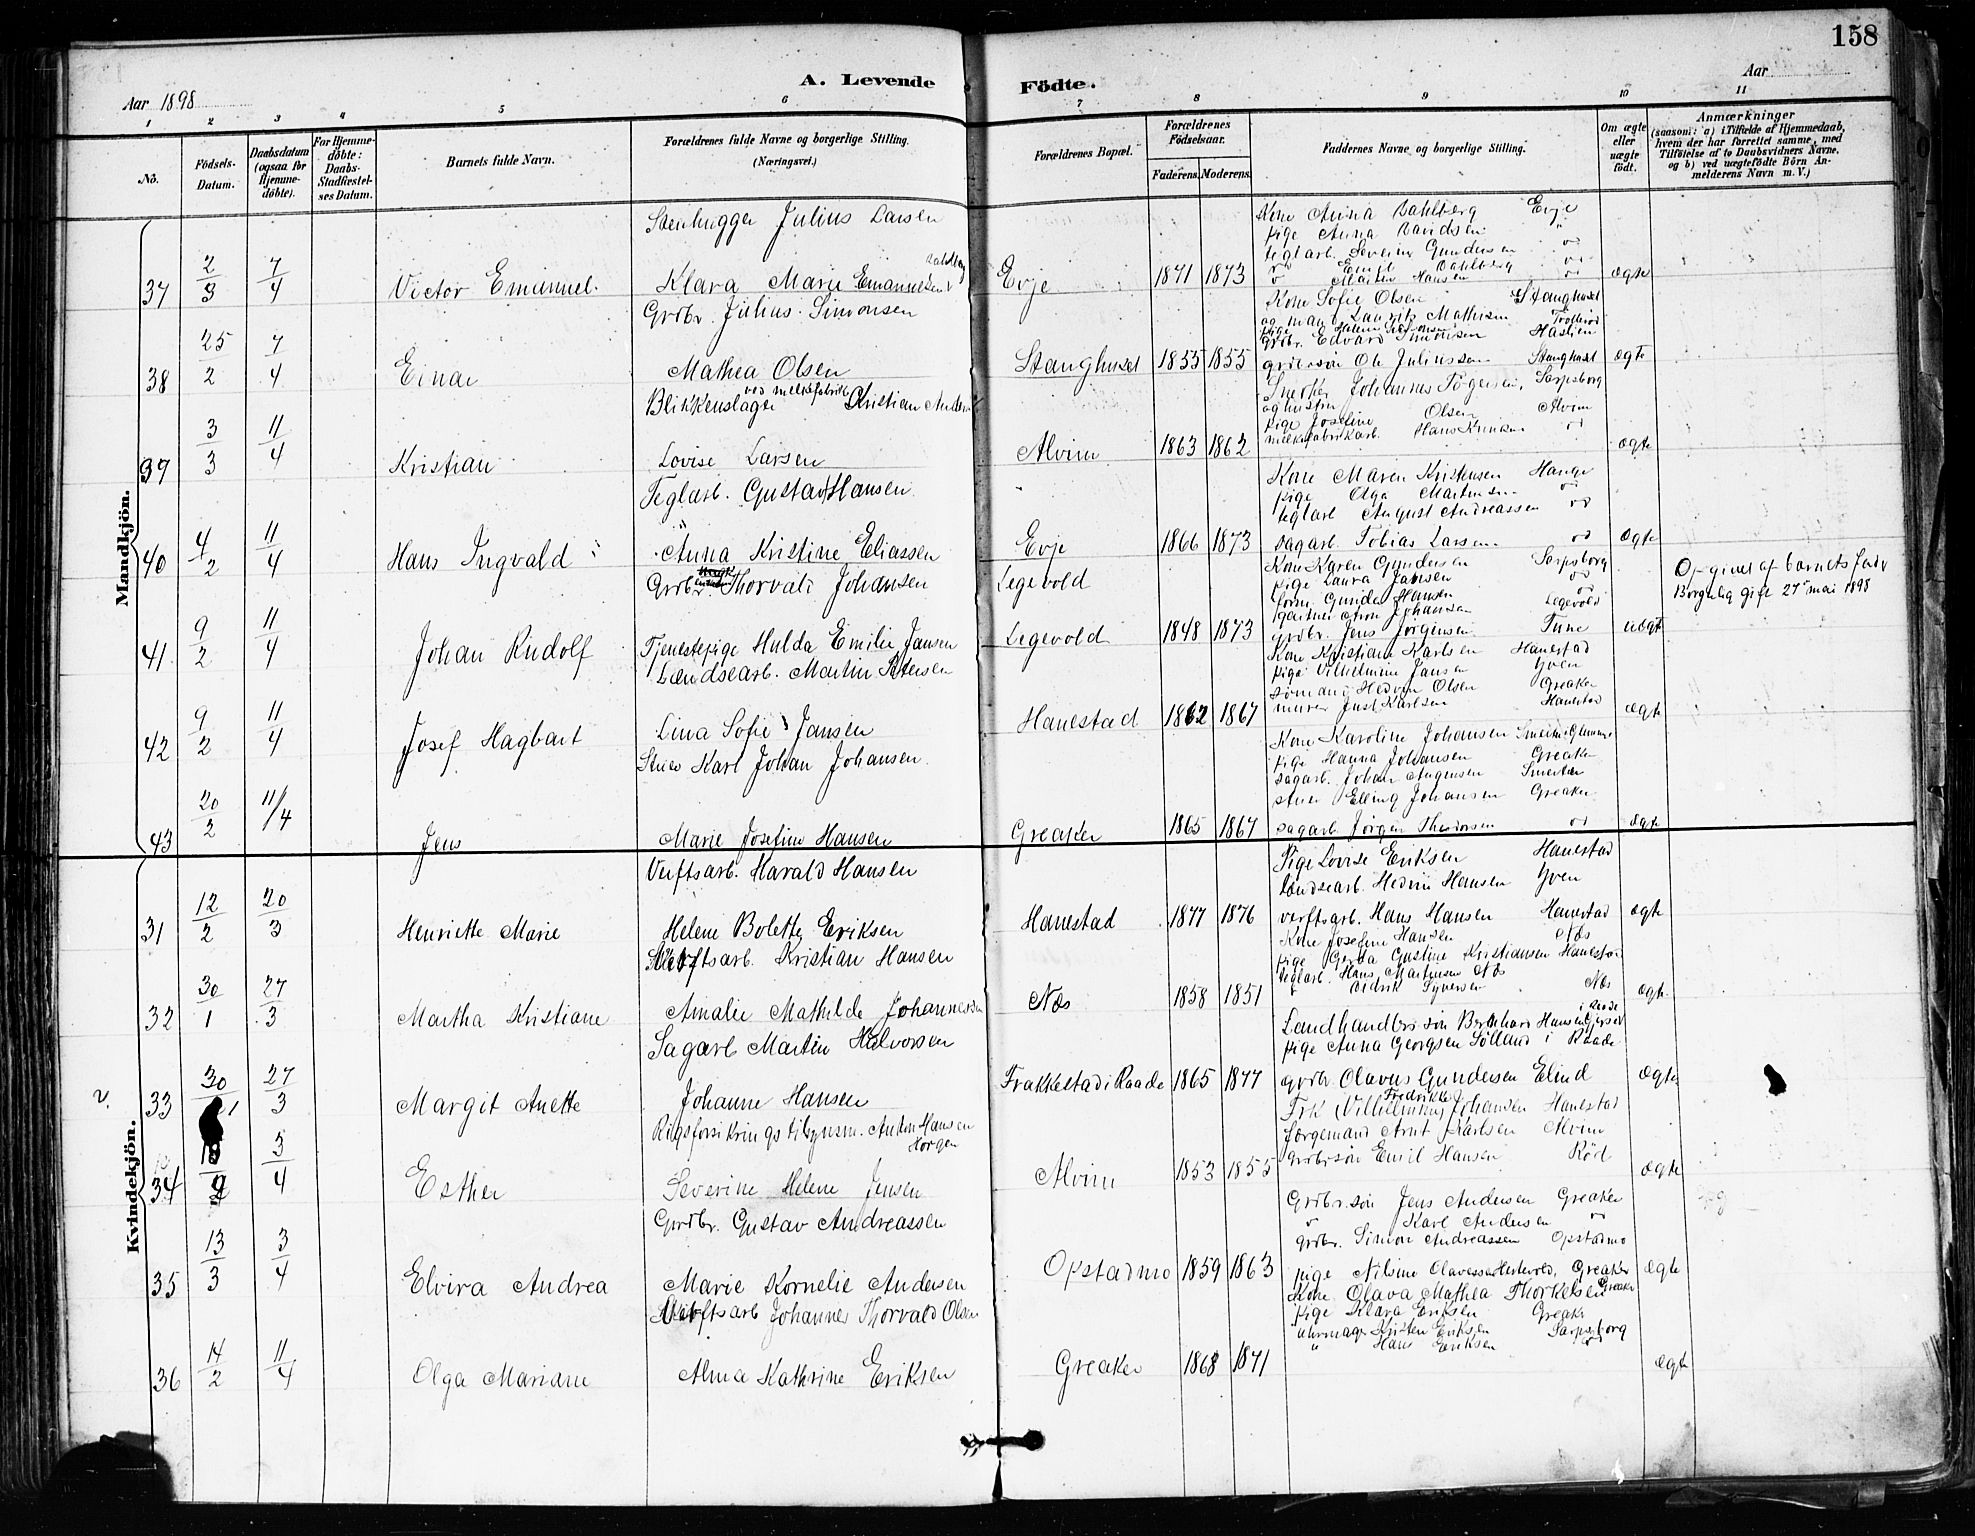 158
A. Levende Födte.
Aar 1898
Aar
1 2 3 4 5 6 7 8 9 10 11
No.
Födsels-Datum.
Daabsdatum (ogsaa for Hjemme-döbte).
For Hjemme-döbte: Daabs-Stadfæstel-ses Datum.
Barnets fulde Navn.
Forældrenes fulde Navne og borgerlige Stilling.
(Næringsvei.)
Forældrenes Bopæl.
Forældrenes Födselsaar.
Faderens. Moderens.
Faddernes Navne og borgerlige Stilling.
Om ægte eller uægte födt.
Anmærkninger
(saasom: a) i Tilfælde af Hjemmedaab, hvem der har forrettet samme, med Tilföielse af to Daabsvidners Navne, og b) ved uægtefödte Börn An-melderens Navn m. V.)
Mandkjön.
37 2/3 7/4 Victor Emanuel.
Stenhugger Julius Larsen
Klara Marie Emanuelsen Dahlberg
Evje 1871 1873
Kone Anna Dahlberg Evje
pige Anna Davidsen "
teglarb. Severin Gundersen do
do Dahlberg do
do Martin Hansen do
ægte
38 25/2 7/4 Einar
Grdbr. Julius Simonsen
Mathea Olsen
Stanghuset 1855 1855
Kone Sofie Olsen Stanghuset
og mand Lauritz Mathisen
Grdbr. Edvard Simonsen
grdbrsön Ole Juliussen Stanghuset
ægte
39 3/3 11/4 Kristian
Blikkenslager ved melkefabrik Kristian
Lovise Larsen
Alvim 1863 1862
Snedker Johannes Sarpsborg
og hustru
pige Josefine Olsen Alvim
melkefabrikarb. Hans do
ægte
40 4/2 11/4 Hans Ingvald
Teglarb. Gustav Hansen.
Anna Kristine Eliassen
Evje 1866 1873
Kone Maren Kristensen Hauge
pige Olga Martinsen do
teglarb August Andreassen do
sagarb. Tobias Larsen do
ægte
41. 9/2 11/4 Johan Rudolf
Grdbr. Enkem. Thorvald Johansen
Tjenestepige Hulda Emilie Jansen
Legevold
Legevold 1848 1873
Kone Karen Gundersen Sarpsborg
pige Laura Jansen do
Gunder Hansen do
gartner Johansen Legevold
grdbr. Jens Jörgensen Tune
uægte
Opgivet af barnets fader
Borgerlig gift 27de mai 1898
42 9/2 11/4 Josef Hagbart
Lændsearb. Martin Petersen
Lina Sofie Jansen
Hanestad 1862 1867
Kone Kristiane Karlsen Hanestad
pige Vilhelmine Jansen Yven
sömand Hedvin Olsen Greaker
murer Just Karlsen Hanestad
ægte
43 20/2 11/4 Jens
Stuer Karl Johan Johansen.
Marie Josefine Hansen
Greaker 1865 1867
Kone Karoline Johansen
pige Hanna Johansen Greaker
sagarb. Johan
stuer Elling Johansen Greaker
sagarb. Jörgen Theodorsen do
ægte
Kvindekjön.
31 12/2 20/3 Henriette Marie
Verftsarb. Harald Hansen
Helene Bolette Eriksen
Hanestad 1877 1876
Pige Lovise Eriksen Hanestad
lændsearb. Hedvin Hansen Yven
verftsarb. Hans Hansen Hanestad
ægte
32 30/1 27/3 Martha Kristiane
Verftsarb. Kristian Hansen
Amalie Mathilde Johannessen
Næs 1858 1851
Kone Josefine Hansen Næs
pige Gerda Gustine Kristiansen Hanestad
teglarb. Hans Martinsen Næs
" Didrik Syversen Næs
ægte.
33 30/1 27/3 Margit Anette
Sagarb Martin Halvorsen
Johanne Hansen
Frakkestad i Raade 1865 1877
Landhandlersön Bernhard Hansen i Raade
pige Anna Georgsen Sölland i Raade
grdbr Olavus Gundersen Elind
ægte
34 4 3/4 Esther
Rigsforsikringstilsynsm. Anton Hansen Horgen
Severine Helene Jensen
Alvim 1853 1855
Frk Vilhelmine Fredrikke Johansen Hanestad
færgemand Arnt Karlsen Alvim
grdbrsön Emil Hansen Röd
ægte
35 13/3 3/4 Elvira Andrea
Grdbr. Gustav Andreassen
Marie Kornelie Andersen
Opstadmo 1859 1863
Grdbr.sön Jens Andersen Greaker
" Karl Andersen do
grdbr. Simon Andreassen Opstadmo
pige Nilsine Olavesen Greaker
ægte
36 14/2 11/4 Olga Mariane
Verftsarb Johannes Thorvald Olsen
Alma Kathrine Eriksen
Greaker 1868 1871
Kone Olava Mathea Thorkelsen Greaker
pige Klara Eriksen Greaker
uhrmager Kristen Eriksen Sarpsborg
" Hans Eriksen "
ægte